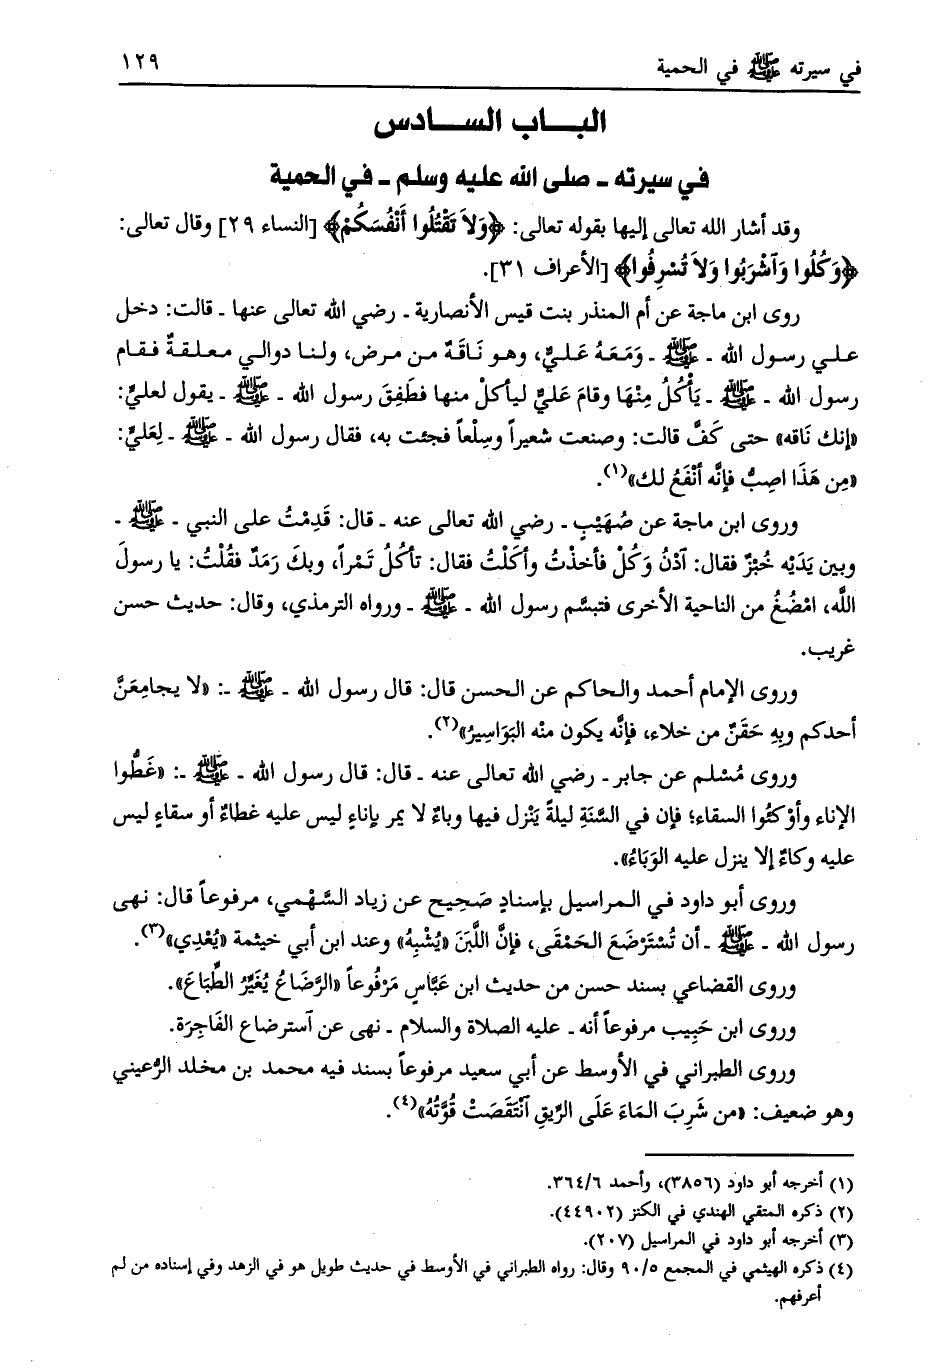 في سيرته ﷺ في الحمية ١٢٩
الباب السادس
في سيرته - صلى الله عليه وسلم - في الحمية
وقد أشار الله تعالى إليها بقوله تعالى: ﴿وَلاَ تَقْتُلُوا أَنْفُسَكُمْ﴾ [النساء ٢٩] وقال تعالى:
﴿وَكُلُوا وَآشْرَبُوا وَلاَ تُسْرِفُوا﴾ [الأعراف ٣١].
روى ابن ماجة عن أم المنذر بنت قيس الأنصارية - رضي الله تعالى عنها - قالت: دخل
علي رسول الله - ﷺ - وَمَعَهُ عَليٌّ، وهو نَاقَهٌ من مرض، ولنا دوالي معلقةٌ فقام
رسول الله - ﷺ - يَأْكُلُ مِنْهَا وقامَ عَليٌّ ليأكلْ منها فطَفِقَ رسول الله - ﷺ - يقول لعليّ:
«إنك نَاقه» حتى كَفَّ قالت: وصنعت شعيراً وسِلْعاً فجئت به، فقال رسول الله - ﷺ - لِعَليّ:
«مِن هَذَا اصِبُّ فإنَّه أنْفَعُ لك»(١).
وروى ابن ماجة عن صُهَيْبٍ - رضي الله تعالى عنه - قال: قَدِمْتُ على النبي - ﷺ -
وبين يَدَيْه خُبْزٌ فقال: آدْنُ وَكُلْ فأخذْتُ وأكَلْتُ فقال: تأكُلُ تَمْراً، وبكَ رَمَدٌ فقُلْتُ: يا رسولَ
اللَّه، امْضُغُ من الناحية الأخرى فتبسَّم رسول الله - ﷺ - ورواه الترمذي، وقال: حديث حسن
غريب.
وروى الإمام أحمد والحاكم عن الحسن قال: قال رسول الله - ﷺ -: «لا يجامِعَنَّ
أحدكم وبِهِ حَقَنٌ من خلاء، فإنَّه يكون منْه البَوَاسِيرُ»(٢).
وروى مُسْلم عن جابر - رضي الله تعالى عنه - قال: قال رسول الله - ﷺ -: «غَطُّوا
الإناء وأوْكئُوا السقاء؛ فإن في السَّنَةِ ليلةً يَنْزِل فيها وباءٌ لا يمر بإناءٍ ليس عليه غطاءٌ أو سقاءٍ ليس
عليه وكاءٌ إلا ينزل عليه الوَبَاءُ».
وروى أبو داود في المراسيل بإسنادٍ صَحِيح عن زياد السَّهْمي، مرفوعاً قال: نهى
رسول الله - ﷺ - أن تُسْتَرْضَعَ الحَمْقَى، فإنَّ اللَّبَنَ «يُشْبِهُ» وعند ابن أبي خيثمة «يُعْدِي»(٣).
وروى القضاعي بسند حسن من حديث ابن عَبَّاسٍ مَرْفُوعاً «الرَّضَاعُ يُغَيِّرُ الطِّبَاعَ».
وروى ابن حَبِيب مرفوعاً أنه - عليه الصلاة والسلام - نهى عن آسترضاع الفَاجِرَة.
وروى الطبراني في الأوسط عن أبي سعيد مرفوعاً بسند فيه محمد بن مخلد الرُّعيني
وهو ضعيف: «من شَرِبَ المَاءَ عَلَى الرِّيقِ آنْتَقَصَتْ قُوَّتُهُ»(٤).
(١) أخرجه أبو داود (٣٨٥٦)، وأحمد ٣٦٤/٦.
(٢) ذكره المتقي الهندي في الكنز (٤٤٩٠٢).
(٣) أخرجه أبو داود في المراسيل (٢٠٧).
(٤) ذكره الهيثمي في المجمع ٩٠/٥ وقال: رواه الطبراني في الأوسط في حديث طويل هو في الزهد وفي إسناده من لم
أعرفهم.